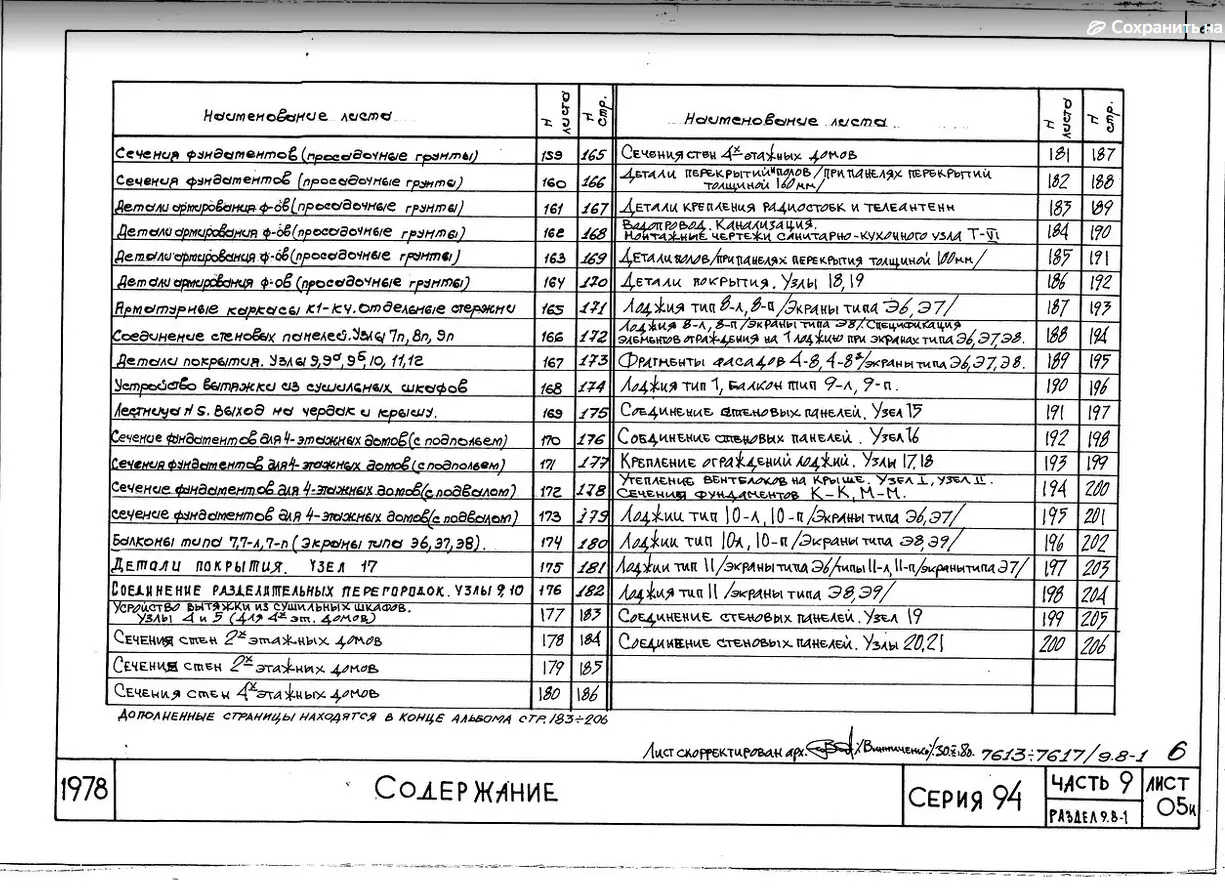 Сохранить на
Наименование листа
N листа
N стр.
Наименование листа
N листа
N стр.
Сечения фундаментов (просадочные грунты) 159 165
Сечения фундаментов (просадочные грунты) 160 166
Детали армирования ф-ов (просадочные грунты) 161 167
Детали армирования ф-ов (просадочные грунты) 162 168
Детали армирования ф-ов (просадочные грунты) 163 169
Детали армирования ф-ов (просадочные грунты) 164 170
Арматурные каркасы К1-К4. Отдельные стержни 165 171
Соединение стеновых панелей. Узлы 7п, 8п, 9п 166 172
Детали покрытия. Узлы 9, 9а, 9б, 10, 11, 12 167 173
Устройство вытяжки из сушильных шкафов 168 174
Лестница N 5. Выход на чердак и крышу. 169 175
Сечение фундаментов для 4-этажных домов (с подпольем) 170 176
Сечения фундаментов для 4-этажных домов (с подпольем) 171 177
Сечение фундаментов для 4-этажных домов (с подвалом) 172 178
Сечение фундаментов для 4-этажных домов (с подвалом) 173 179
Балконы типа 7, 7-л, 7-п (Экраны типа Э6, Э7, Э8). 174 180
Детали покрытия. Узел 17 175 181
Соединение разделительных перегородок. Узлы 9, 10 176 182
Устройство вытяжки из сушильных шкафов.
Узлы 4 и 5 (для 4х эт. домов) 177 183
Сечения стен 2х этажных домов 178 184
Сечения стен 2х этажных домов 179 185
Сечения стен 4х этажных домов 180 186
Сечения стен 4х этажных домов 181 187
Детали перекрытий и полов /при панелях перекрытий
толщиной 160мм/ 182 188
Детали крепления радиостоек и телеантенн 183 189
Водопровод. Канализация.
Монтажные чертежи санитарно-кухочного узла Т-VI 184 190
Детали полов /при панелях перекрытия толщиной 100мм/ 185 191
Детали покрытия. Узлы 18, 19 186 192
Лоджия тип 8-л, 8-п /Экраны типа Э6, Э7/ 187 193
Лоджия 8-л, 8-п /Экраны типа Э8/. Спецификация
элементов ограждения на 1 лоджию при экранах типа Э6, Э7, Э8. 188 194
Фрагменты фасадов 4-8, 4-8а /экраны типа Э6, Э7, Э8. 189 195
Лоджия тип 1, Балкон тип 9-л, 9-п. 190 196
Соединение стеновых панелей. Узел 15 191 197
Соединение стеновых панелей. Узел 16 192 198
Крепление ограждений лоджий. Узлы 17, 18 193 199
Утепление вентблоков на крыше. Узел I, узел II.
Сечения фундаментов К-К, М-М. 194 200
Лоджии тип 10-л, 10-п /Экраны типа Э6, Э7/ 195 201
Лоджии тип 10л, 10-п /Экраны типа Э8, Э9/ 196 202
Лоджии тип 11 /экраны типа Э6/ типы 11-л, 11-п /экраны типа Э7/ 197 203
Лоджия тип 11 /экраны типа Э8, Э9/ 198 204
Соединение стеновых панелей. Узел 19 199 205
Соединение стеновых панелей. Узлы 20, 21 200 206
Дополненные страницы находятся в конце альбома стр. 183÷206
Лист скорректирован арх. /Винниченко/ 7613÷7617/9.8-1 6
1978
Содержание
Серия 94
Часть 9
Раздел 9.8-1
Лист
05и